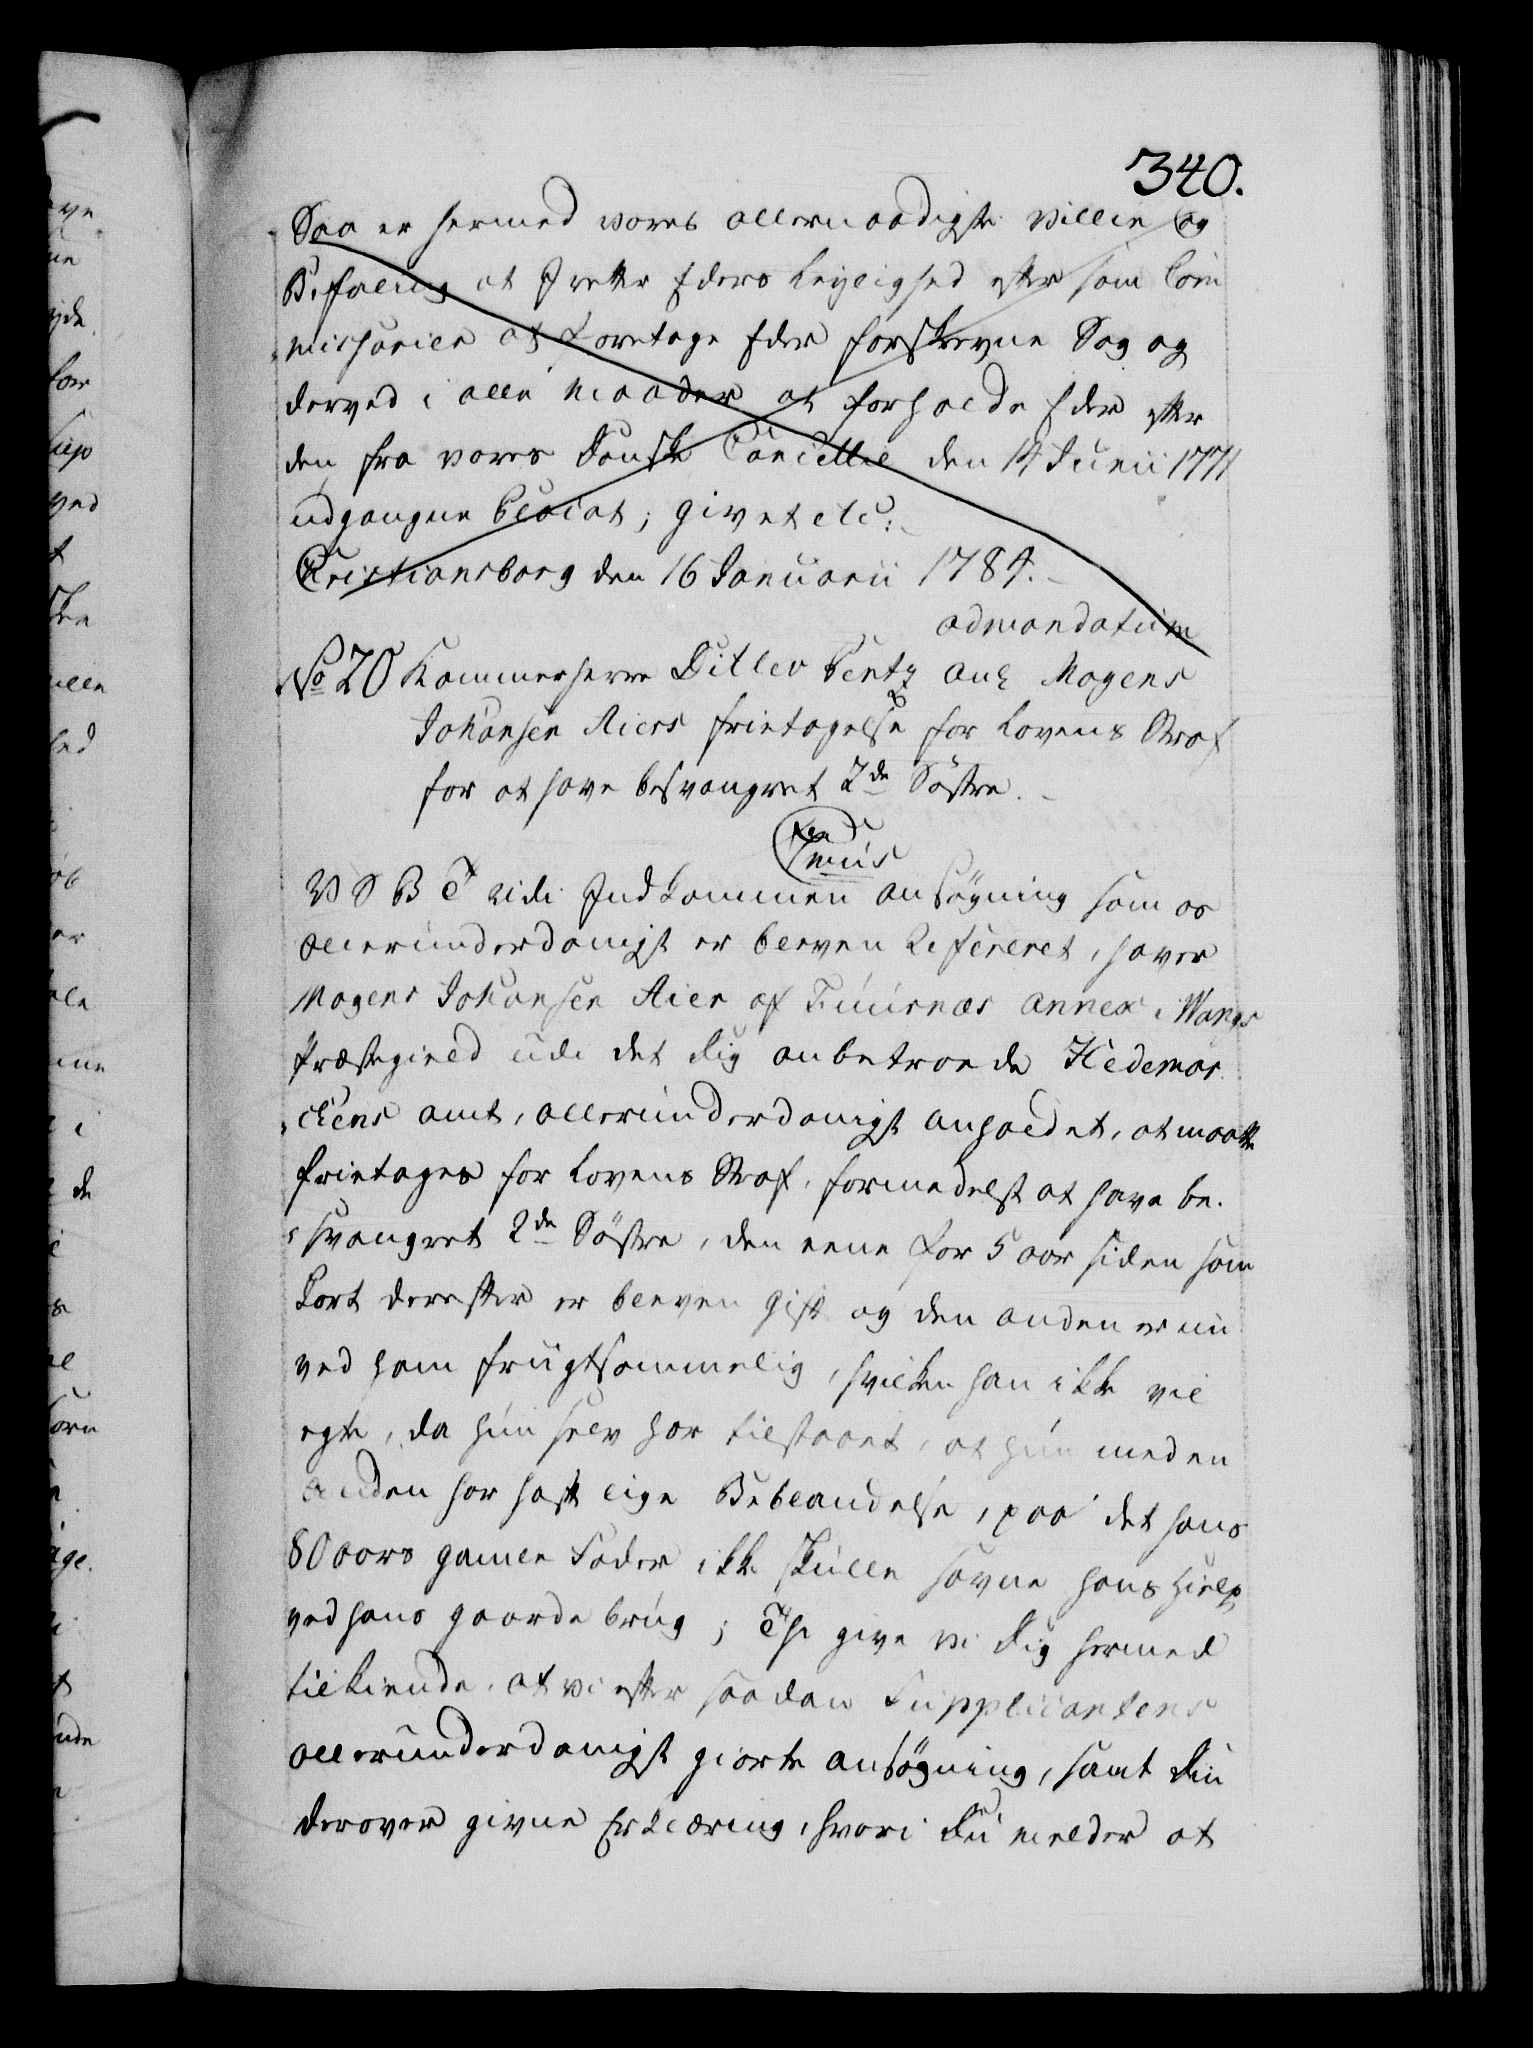 340.
Saa er hermed vores allernaadigste Villie og
Befaling at I rette Eders Leylighed efter som Com
missarier at foretage Eder forskrevne Sag og
derved i alle Maader at forholde Eder efter
den fra vores Danske Cancellie den 14 Junii 1771
udgangne Placat; Givet etc:
Christiansborg den 16 Januarii 1784.
ad mandatum
No 20 Kammerherre Ditlev Pentz anl Mogens
Johansen Aiers frietagelse for Lovens Straf
for at have besvangret 2de Söstre.
V S B T udi Indkommen ansøgning som os
allerunderdanigst er bleven Refereret, haver
Mogens Johansen Aier af Fuurnæs annex i Wangs
Præstegield udi det dig anbetroede Hedemar
ckens amt, allerunderdanigst anholdet, at maatte
frietages for Lovens Straf, formedelst at have be
svangret 2de Söstre, den eene for 5 aar siden som
kort derefter er bleven gift og den anden er nu
ved ham frugtsommelig, hvilken han ikke vil
egte, da hun selv har tilstaaet, at hun med en
anden har haft lige Beblandelse, paa det hans
80 aars gamle Fader ikke skulle savne hans Hielp
ved hans gaards brug; Thi give vi dig hermed
tilkiende, at vi efter saadan Supplicantens
allerunderdanigst giorte ansøgning, samt din
derover givne Erklæring, hvori du melder at